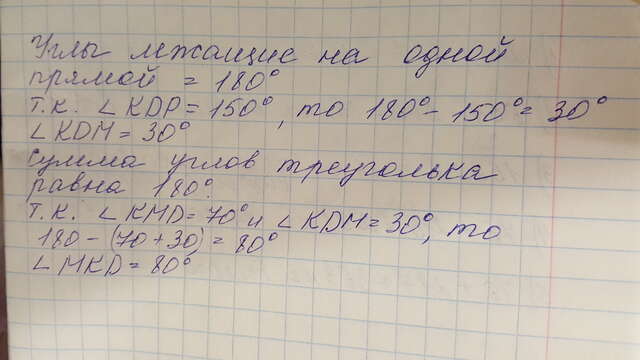 Углы лежащие на одной
прямой = 180°
т.к. ∠KDP = 150°, то 180° - 150° = 30°
∠KDM = 30°
Сумма углов треуголька
равна 180°.
т.к. ∠KMD = 70° и ∠KDM = 30°, то
180 - (70 + 30) = 80°
∠MKD = 80°